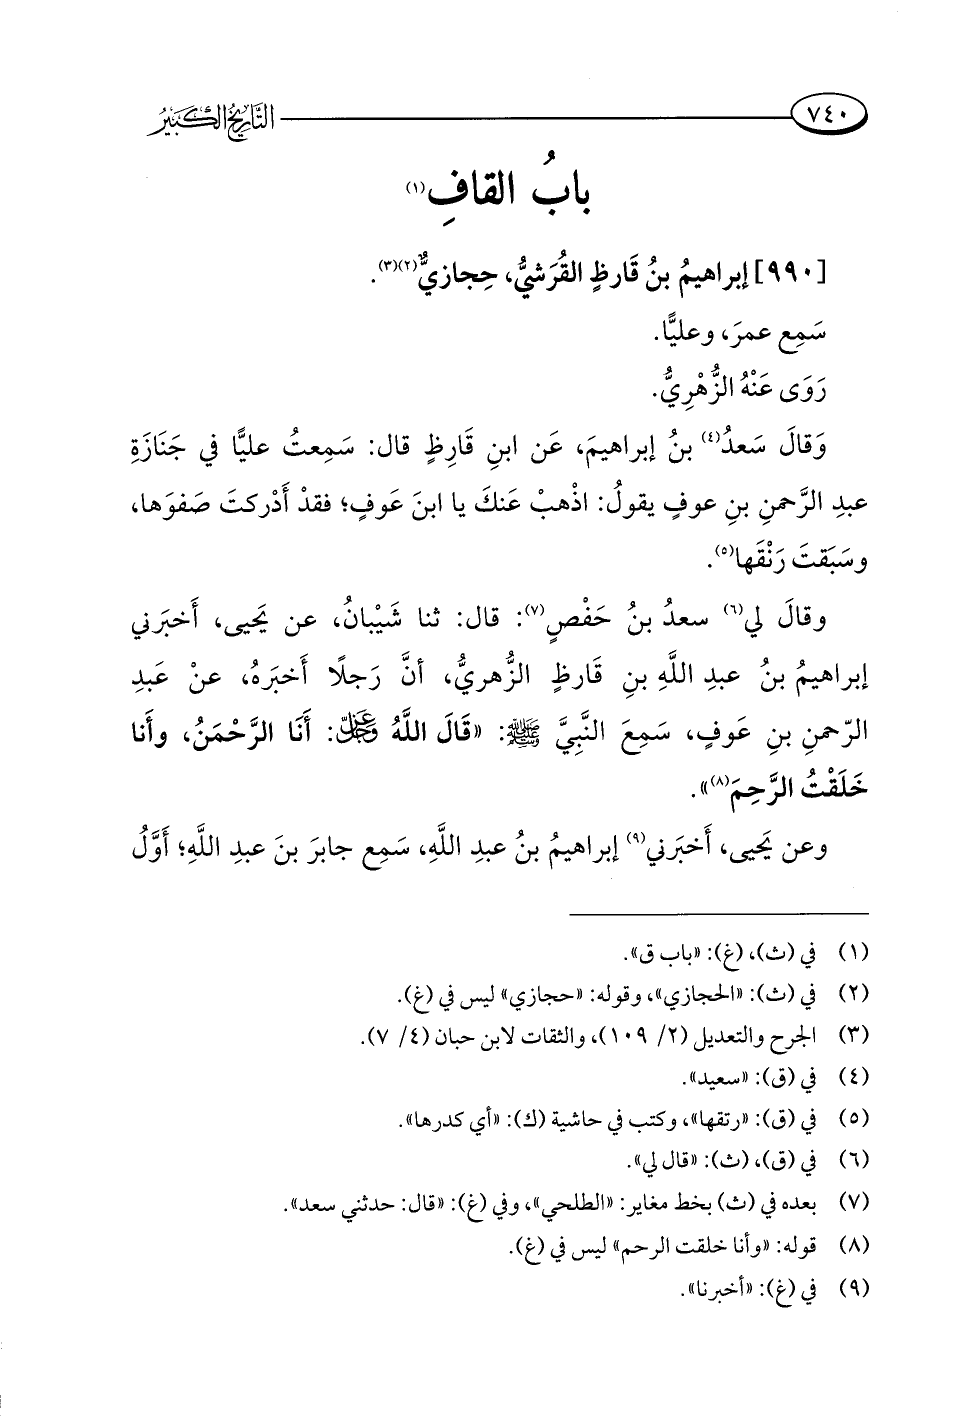 ٧٤٠ التَّارِيخُ الكَبِيرُ
بابُ القافِ(١)
[٩٩٠] إبراهيمُ بنُ قَارظٍ القُرَشيُّ، حِجازيٌّ(٢)(٣).
سَمِع عمرَ، وعليًّا.
رَوَى عَنْهُ الزُّهْرِيُّ.
وَقَالَ سَعدُ(٤) بنُ إبراهيمَ، عَن ابنِ قَارِظٍ قال: سَمِعتُ عليًّا في جَنَازَةِ
عبدِ الرَّحمنِ بنِ عوفٍ يقولُ: اذْهبْ عَنكَ يا ابنَ عَوفٍ؛ فقدْ أَدْركتَ صَفوَها،
وسَبَقتَ رَنْقَها(٥).
وقالَ لي(٦) سعدُ بنُ حَفْصٍ(٧): قال: ثنا شَيْبانُ، عن يَحيى، أَخبَرني
إبراهيمُ بنُ عبدِ اللَّهِ بنِ قَارظٍ الزُّهريُّ، أنَّ رَجلًا أَخبَرهُ، عنْ عَبدِ
الرّحمنِ بنِ عَوفٍ، سَمِعَ النَّبِيَّ ﷺ: «قَالَ اللَّهُ عَزَّ وَجَلَّ: أَنَا الرَّحْمَنُ، وأَنا
خَلَقْتُ الرَّحِمَ(٨)».
وعن يَحيى، أَخبَرني(٩) إبراهيمُ بنُ عبدِ اللَّهِ، سَمِع جابرَ بنَ عبدِ اللَّهِ؛ أَوَّلُ
(١) في (ث)، (غ): «باب ق».
(٢) في (ث): «الحجازي»، وقوله: «حجازي» ليس في (غ).
(٣) الجرح والتعديل (٢/ ١٠٩)، والثقات لابن حبان (٤/ ٧).
(٤) في (ق): «سعيد».
(٥) في (ق): «رتقها»، وكتب في حاشية (ك): «أي كدرها».
(٦) في (ق)، (ث): «قال لي».
(٧) بعده في (ث) بخط مغاير: «الطلحي»، وفي (غ): «قال: حدثني سعد».
(٨) قوله: «وأنا خلقت الرحم» ليس في (غ).
(٩) في (غ): «أخبرنا».